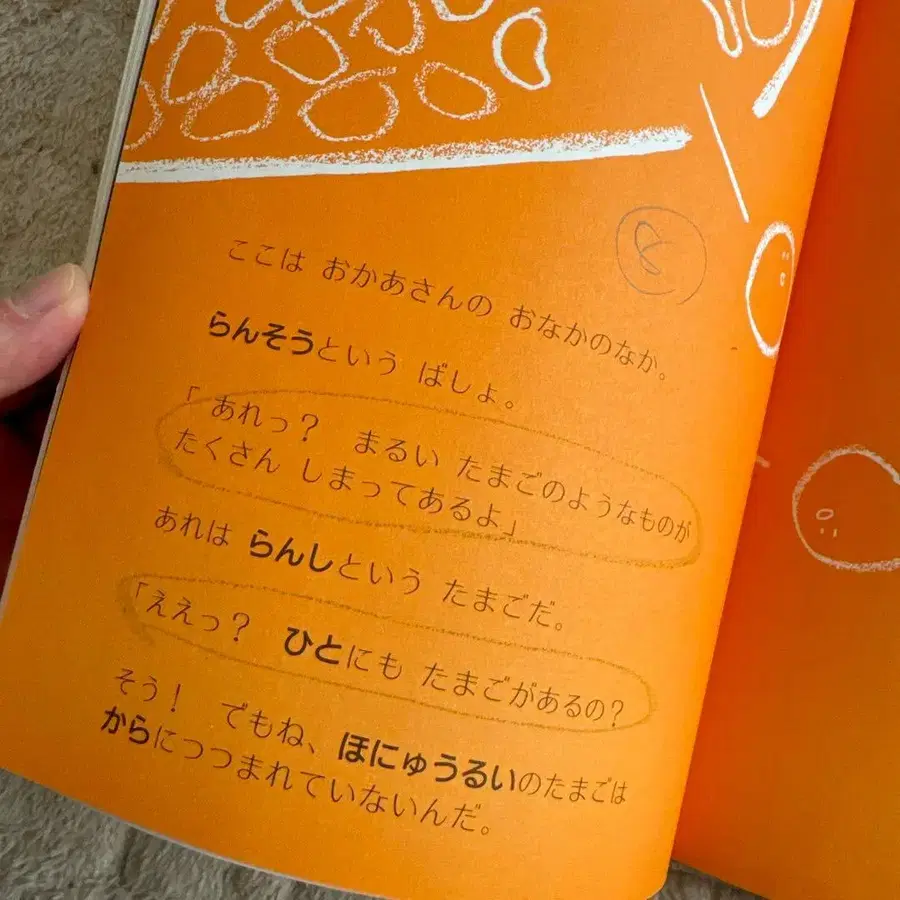 8
ここは おかあさんの おなかのなか。
らんそうという ばしょ。
「あれっ? まるい たまごのようなものが
たくさん しまってあるよ」
あれは らんしという たまごだ。
「ええっ? ひとにも たまごがあるの?
そう! でもね、ほにゅうるいのたまごは
からにつつまれていないんだ。